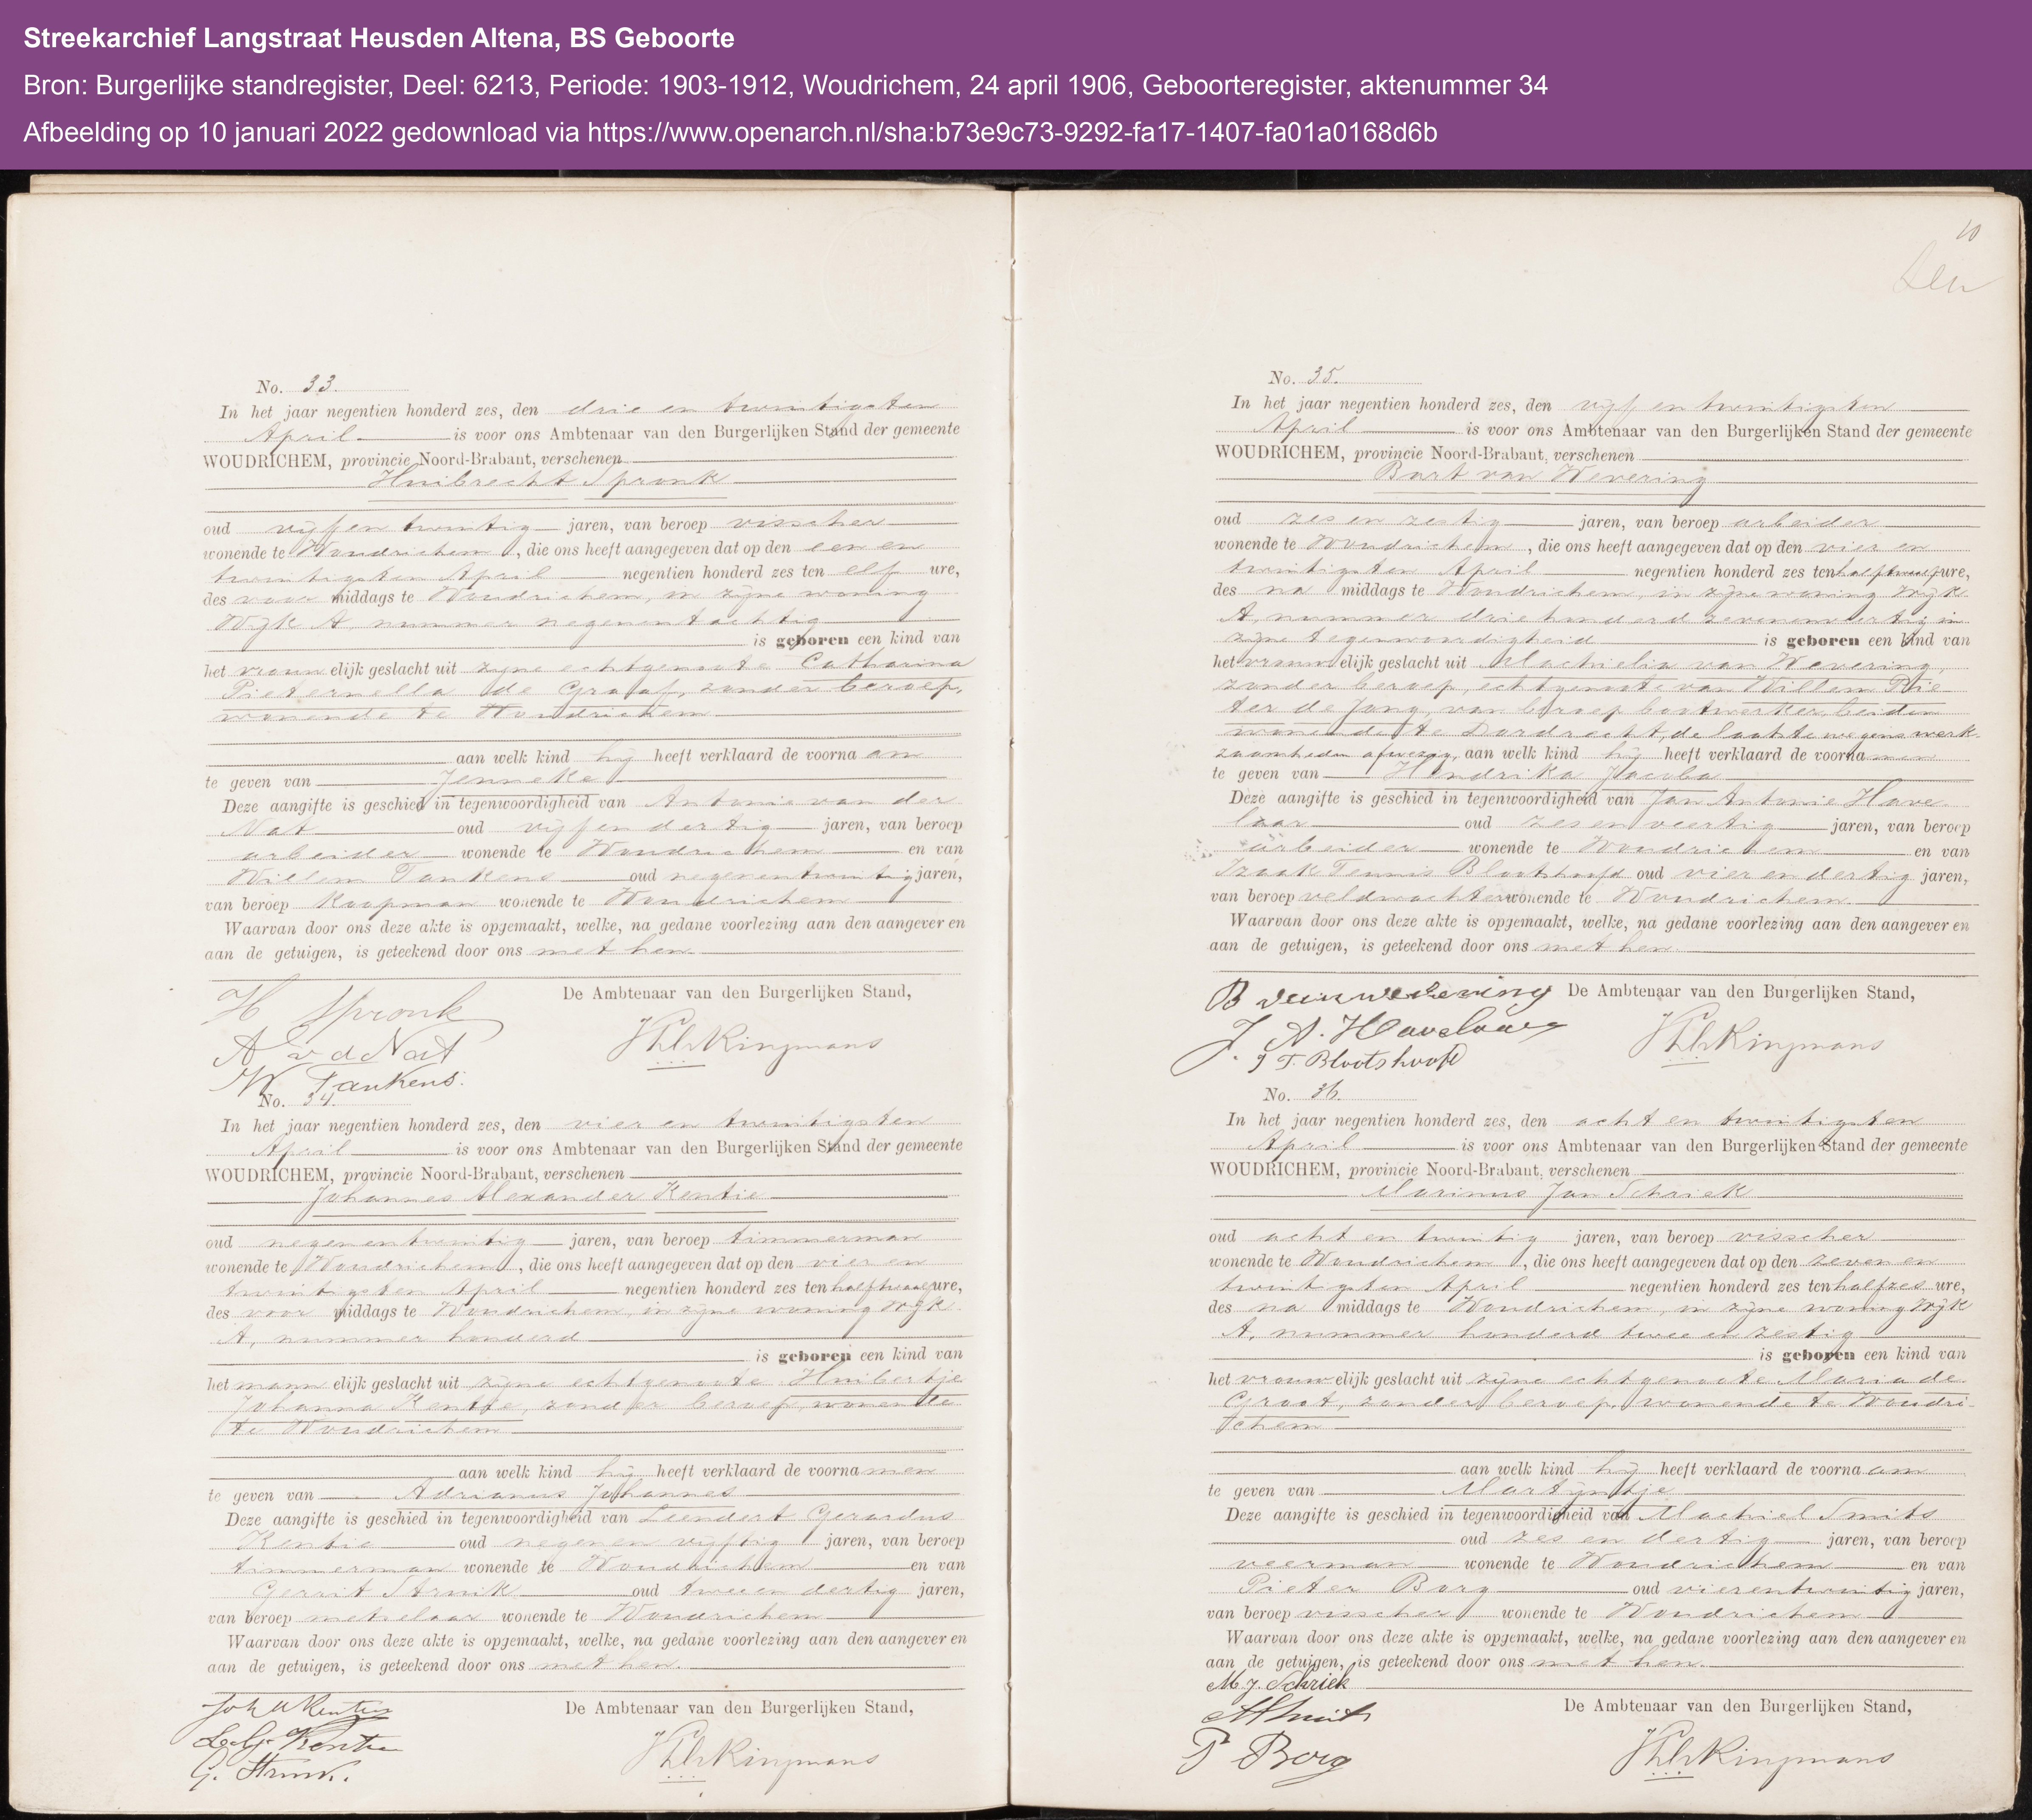 Streekarchief Langstraat Heusden Altena, BS Geboorte
Bron: Burgerlijke standregister, Deel: 6213, Periode: 1903-1912, Woudrichem, 24 april 1906, Geboorteregister, aktenummer 34
Afbeelding op 10 januari 2022 gedownload via https://www.openarch.nl/sha:b73e9c73-9292-fa17-1407-fa01a0168d6b
No. 33.
In het jaar negentien honderd zes, den drie en twintigsten
April is voor ons Ambtenaar van den Burgerlijken Stand der gemeente
WOUDRICHEM, provincie Noord-Brabant, verschenen
Huibrecht Spronk
oud vijf en twintig jaren, van beroep visscher
wonende te Woudrichem, die ons heeft aangegeven dat op den een en
twintigsten April negentien honderd zes ten elf ure,
des voor middags te Woudrichem, in zijne woning
Wijk A, nummer negenentachtig
is geboren een kind van
het vrouwelijk geslacht uit zijne echtgenoote Catharina
Pieternella de Graaf, zonder beroep,
wonende te Woudrichem
aan welk kind hij heeft verklaard de voornaam
te geven van Jenneke
Deze aangifte is geschied in tegenwoordigheid van Antonie van der
Nat oud vijf en dertig jaren, van beroep
arbeider wonende te Woudrichem en van
Willem Tankens oud negenentwintig jaren,
van beroep koopman wonende te Woudrichem
Waarvan door ons deze akte is opgemaakt, welke, na gedane voorlezing aan den aangever en
aan de getuigen, is geteekend door ons met hen.
De Ambtenaar van den Burgerlijken Stand,
H Spronk
A v d Nat
W Tankens.
No. 34.
In het jaar negentien honderd zes, den vier en twintigsten
April is voor ons Ambtenaar van den Burgerlijken Stand der gemeente
WOUDRICHEM, provincie Noord-Brabant, verschenen
Johannes Alexander Kentie
oud negenentwintig jaren, van beroep timmerman
wonende te Woudrichem, die ons heeft aangegeven dat op den vier en
twintigsten April negentien honderd zes ten halftwaalf ure,
des voor middags te Woudrichem, in zijne woning Wijk
A, nummer honderd
is geboren een kind van
het mannelijk geslacht uit zijne echtgenoote Huibertje
Johanna Kentie, zonder beroep, wonende
te Woudrichem
aan welk kind hij heeft verklaard de voornamen
te geven van Adrianus Johannes
Deze aangifte is geschied in tegenwoordigheid van Leendert Gerardus
Kentie oud negen en vijftig jaren, van beroep
timmerman wonende te Woudrichem en van
Gerrit Struik oud twee en dertig jaren,
van beroep metselaar wonende te Woudrichem
Waarvan door ons deze akte is opgemaakt, welke, na gedane voorlezing aan den aangever en
aan de getuigen, is geteekend door ons met hen.
De Ambtenaar van den Burgerlijken Stand,
Joh A Kentie
L. G. Kentie
G. Struik.
10
No. 35.
In het jaar negentien honderd zes, den vijf en twintigsten
April is voor ons Ambtenaar van den Burgerlijken Stand der gemeente
WOUDRICHEM, provincie Noord-Brabant, verschenen
Bart van Wevering
oud zes en zestig jaren, van beroep arbeider
wonende te Woudrichem, die ons heeft aangegeven dat op den vier en
twintigsten April negentien honderd zes ten halftwaalf ure,
des na middags te Woudrichem, in zijne woning Wijk
A, nummer driehonderd zevenenveertig in
zijne tegenwoordigheid is geboren een kind van
het vrouwelijk geslacht uit Machielia van Wevering,
zonder beroep, echtgenoote van Willem Pie-
ter de Jong, van beroep bootwerker, beiden
wonende te Dordrecht, de laatste wegens werk-
zaamheden afwezig, aan welk kind hij heeft verklaard de voornamen
te geven van Hendrika Jacoba
Deze aangifte is geschied in tegenwoordigheid van Jan Antonie Have
laar oud zes en veertig jaren, van beroep
arbeider wonende te Woudrichem en van
Izaak Teunis Blootshoofd oud vier en dertig jaren,
van beroep veldwachter wonende te Woudrichem.
Waarvan door ons deze akte is opgemaakt, welke, na gedane voorlezing aan den aangever en
aan de getuigen, is geteekend door ons met hen.
De Ambtenaar van den Burgerlijken Stand,
B van wevering
J. A. Havelaar
J T. Blootshoofd
No. 36.
In het jaar negentien honderd zes, den acht en twintigsten
April is voor ons Ambtenaar van den Burgerlijken Stand der gemeente
WOUDRICHEM, provincie Noord-Brabant, verschenen
Marinus Jan Schriek
oud acht en twintig jaren, van beroep visscher
wonende te Woudrichem, die ons heeft aangegeven dat op den zeven en
twintigsten April negentien honderd zes ten halfzes ure,
des na middags te Woudrichem, in zijne woning Wijk
A, nummer honderd twee en zestig
is geboren een kind van
het vrouwelijk geslacht uit zijne echtgenoote Maria de
Groot, zonder beroep, wonende te Woudri-
chem
aan welk kind hij heeft verklaard de voornaam
te geven van Martijntje
Deze aangifte is geschied in tegenwoordigheid van Machiel Smits
oud zes en dertig jaren, van beroep
veerman wonende te Woudrichem en van
Pieter Borg oud vierentwintig jaren,
van beroep visscher wonende te Woudrichem
Waarvan door ons deze akte is opgemaakt, welke, na gedane voorlezing aan den aangever en
aan de getuigen, is geteekend door ons met hen.
M J. Schriek
De Ambtenaar van den Burgerlijken Stand,
M Smits
P Borg